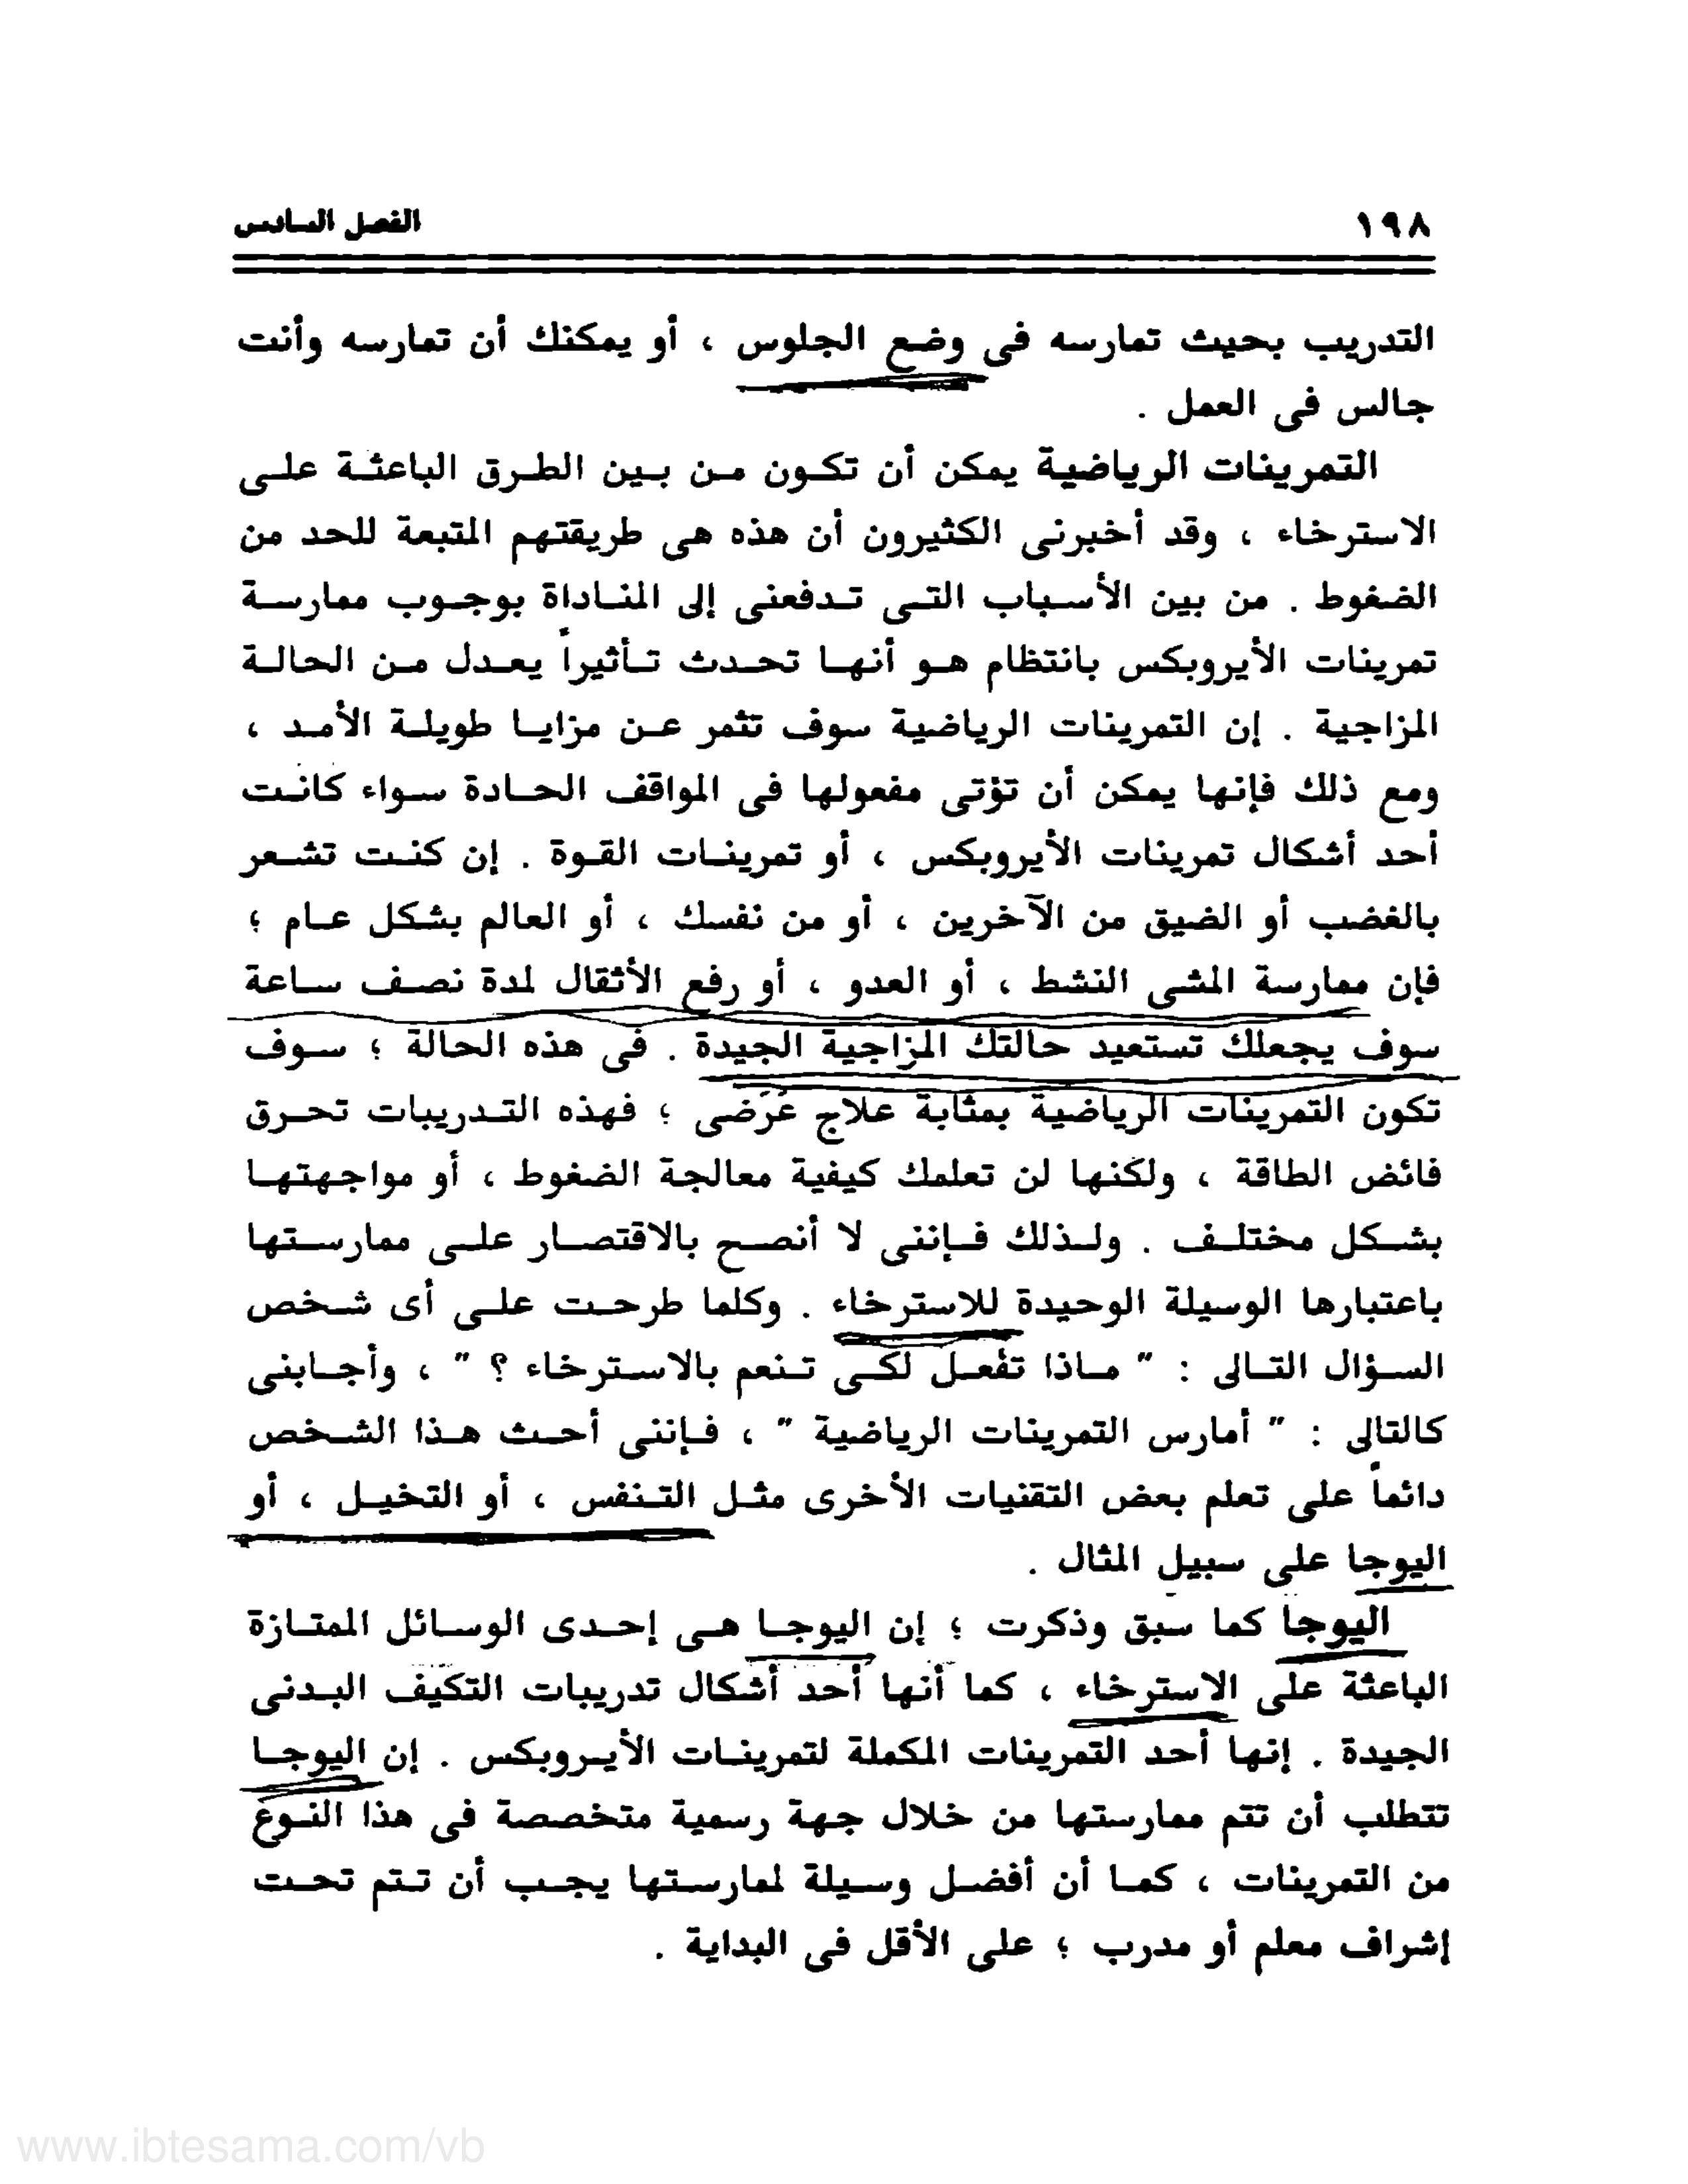 ١٩٨ الفصل السادس
التدريب بحيث تمارسه فى وضع الجلوس ، أو يمكنك أن تمارسه وأنت
جالس فى العمل .
التمرينات الرياضية يمكن أن تكون من بين الطرق الباعثة على
الاسترخاء ، وقد أخبرنى الكثيرون أن هذه هى طريقتهم المتبعة للحد من
الضغوط . من بين الأسباب التى تدفعنى إلى المناداة بوجوب ممارسة
تمرينات الأيروبكس بانتظام هو أنها تحدث تأثيراً يعدل من الحالة
المزاجية . إن التمرينات الرياضية سوف تثمر عن مزايا طويلة الأمد ،
ومع ذلك فإنها يمكن أن تؤتى مفعولها فى المواقف الحادة سواء كانت
أحد أشكال تمرينات الأيروبكس ، أو تمرينات القوة . إن كنت تشعر
بالغضب أو الضيق من الآخرين ، أو من نفسك ، أو العالم بشكل عام ؛
فإن ممارسة المشى النشط ، أو العدو ، أو رفع الأثقال لمدة نصف ساعة
سوف يجعلك تستعيد حالتك المزاجية الجيدة . فى هذه الحالة ؛ سوف
تكون التمرينات الرياضية بمثابة علاج عَرَضى ؛ فهذه التدريبات تحرق
فائض الطاقة ، ولكنها لن تعلمك كيفية معالجة الضغوط ، أو مواجهتها
بشكل مختلف . ولذلك فإننى لا أنصح بالاقتصار على ممارستها
باعتبارها الوسيلة الوحيدة للاسترخاء . وكلما طرحت على أى شخص
السؤال التالى : " ماذا تفعل لكى تنعم بالاسترخاء ؟ " ، وأجابنى
كالتالى : " أمارس التمرينات الرياضية " ، فإننى أحث هذا الشخص
دائماً على تعلم بعض التقنيات الأخرى مثل التنفس ، أو التخيل ، أو
اليوجا على سبيل المثال .
اليوجا كما سبق وذكرت ؛ إن اليوجا هى إحدى الوسائل الممتازة
الباعثة على الاسترخاء ، كما أنها أحد أشكال تدريبات التكيف البدنى
الجيدة . إنها أحد التمرينات المكملة لتمرينات الأيروبكس . إن اليوجا
تتطلب أن تتم ممارستها من خلال جهة رسمية متخصصة فى هذا النوع
من التمرينات ، كما أن أفضل وسيلة لممارستها يجب أن تتم تحت
إشراف معلم أو مدرب ؛ على الأقل فى البداية .
www.ibtesama.com/vb